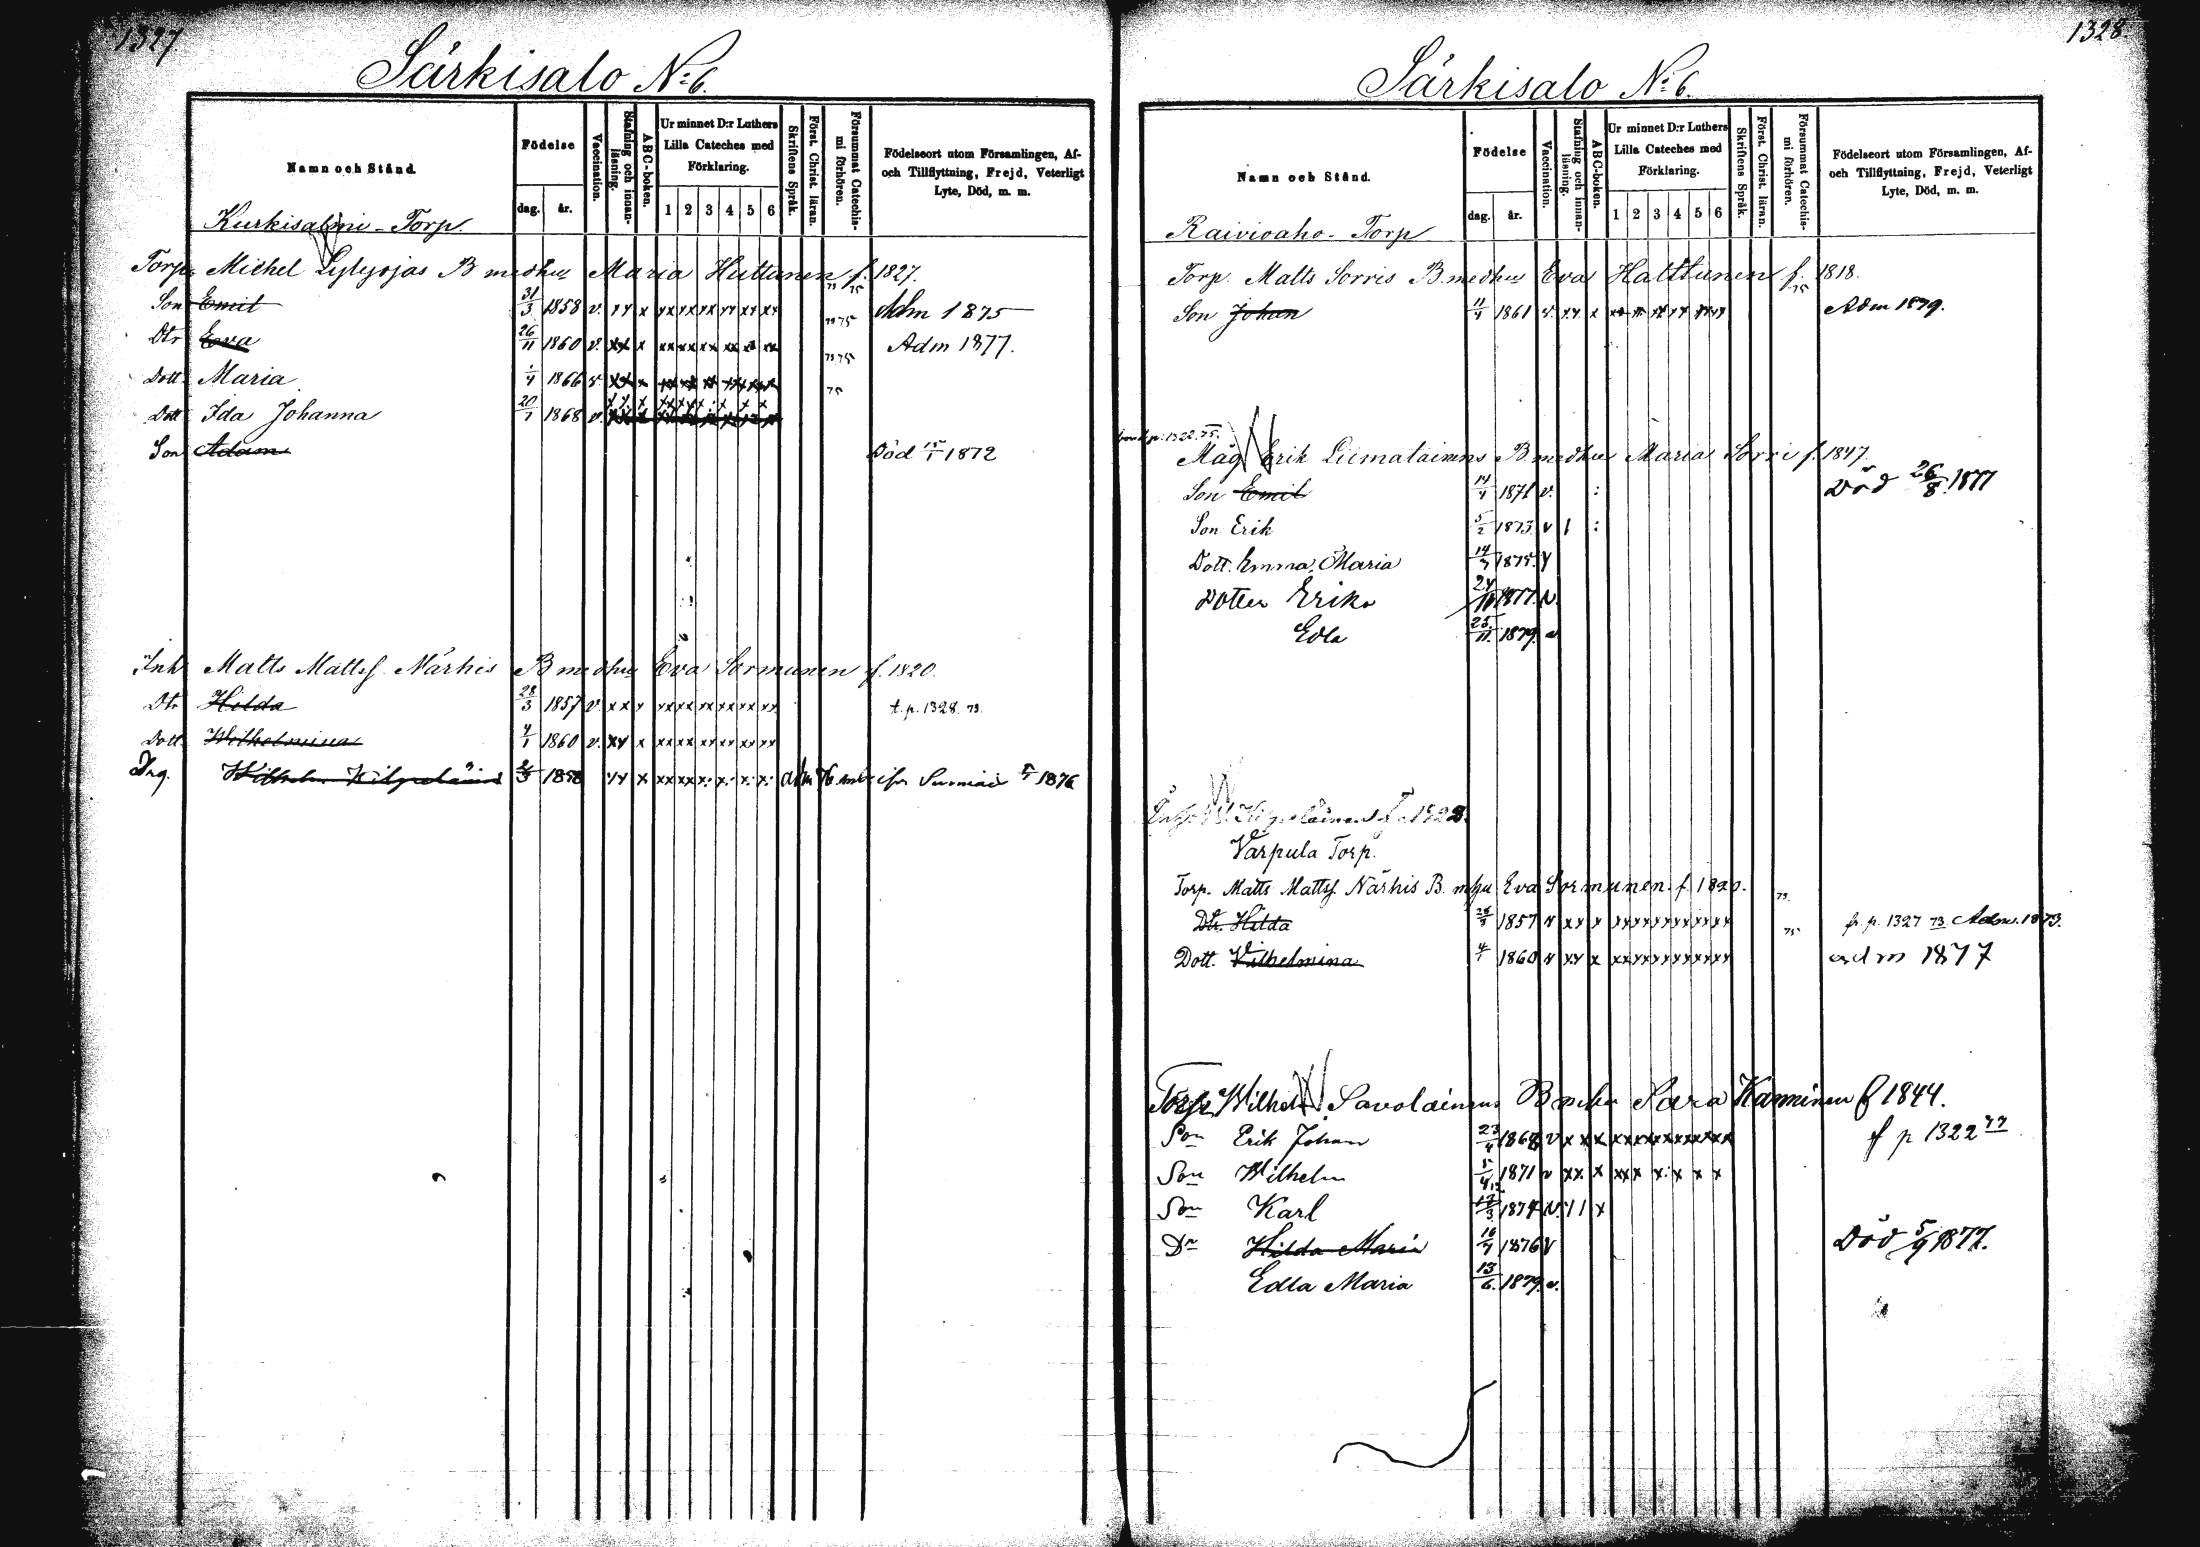 1327
Särkisalo No 6.
Namn och Stånd.
Födelse
dag. år.
Vaccination.
Stafning och innan-läsning.
ABC-boken.
Ur minnet D:r Luthers Lilla Cateches med Förklaring.
1 2 3 4 5 6
Skriftens Språk.
Först. Christ. läran.
Försummat Catechis-mi förhören.
Födelseort utom Församlingen, Af- och Tillflyttning, Frejd, Veterligt Lyte, Död, m. m.
Kurkisalmi - Torp.
Torp. Michel Lylyojas B medhu Maria Huttunen f. 1827.
Son Emil 31/3 1858 v. xx x xx xx xx xx xx xx 73 75 Adm 1875
Dtr Eva 26/11 1860 v. xx x xx xx xx xx xx xx 73 75 Adm 1877.
Dott. Maria 1866 v xx x xx xx xx xx xx xx 73 75
Dott Ida Johanna 20/7 1868 v. xx x 75
Son Adam Död 15/1 1872
Inh. Matts Mattsf. Närhis B medhu Eva Sormunen f. 1820.
Dtr Hilda 28/3 1857 v. xx x xx xx xx xx xx xx t. p. 1328. 73.
Dott. Wilhelmina 4/1 1860 v. xx x xx xx xx xx xx xx
Drg. Wilhelm Kilpeläinen 1858 xx x adm 76 1876
1328.
Särkisalo No 6.
Namn och Stånd.
Födelse
dag. år.
Vaccination.
Stafning och innan-läsning.
ABC-boken.
Ur minnet D:r Luthers Lilla Cateches med Förklaring.
1 2 3 4 5 6
Skriftens Språk.
Först. Christ. läran.
Försummat Catechis-mi förhören.
Födelseort utom Församlingen, Af- och Tillflyttning, Frejd, Veterligt Lyte, Död, m. m.
Raivioaho - Torp
Torp. Matts Sorris B. medhu Eva Hatttunen f. 1818.
Son Johan 11/4 1861 v xx x xx xx xx xx xx xx 75 Adm 1879.
p. 1322. 75.
Måg Erik Liimatainens B medhu Maria Sorri f. 1847.
Son Emil 14/1 1871 v. : Död 26/8 1877
Son Erik 5/2 1873. v 1 :
Dott. Emma Maria 14/7 1875. v
Dotter Erika 24/10 1877. v.
Edla 25/11 1879. v
Kilpeläinen f. 1828.
Varpula Torp.
Torp. Matts Mattsf Närhis B. mhu Eva Sormunen f. 1820. 73
Dtr. Hilda 28/3 1857 v xx x xx xx xx xx xx xx 75 fr. p. 1327 73. Adm. 1873.
Dott. Vilhelmina 4/1 1860 v xx x xx xx xx xx xx xx adm 1877
Torp. Wilhelm Savolainens B mhu Sara Kanninen f 1844.
Son Erik Johan 23/4 1868 v xx x xx xx xx xx xx xx f p 1322 77
Son Wilhelm 1871 v xx. x xx x x: x x x
Son Karl 12/3 1874 v. 1 1 x
Dr Hilda Maria 16/7 1876 v Död 5/9 1877.
Edla Maria 13/6. 1879. v.